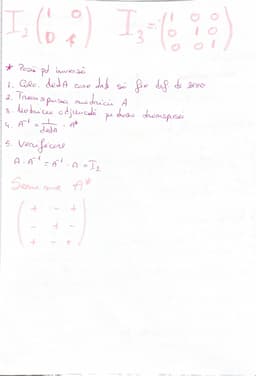 I₂ (1 0
0 1) I₃ = (1 0 0
0 1 0
0 0 1)
* Pași pt inversă
1. Calc. det A care treb să fie dif de zero
2. Transpusa matricii A
3. Matricea adjunctă pe baza transpusei
4. A⁻¹ = 1/det A · A*
5. Verificare
A · A⁻¹ = A⁻¹ · A = I₂
Semne A*
(+ - +
- + -
+ - +)